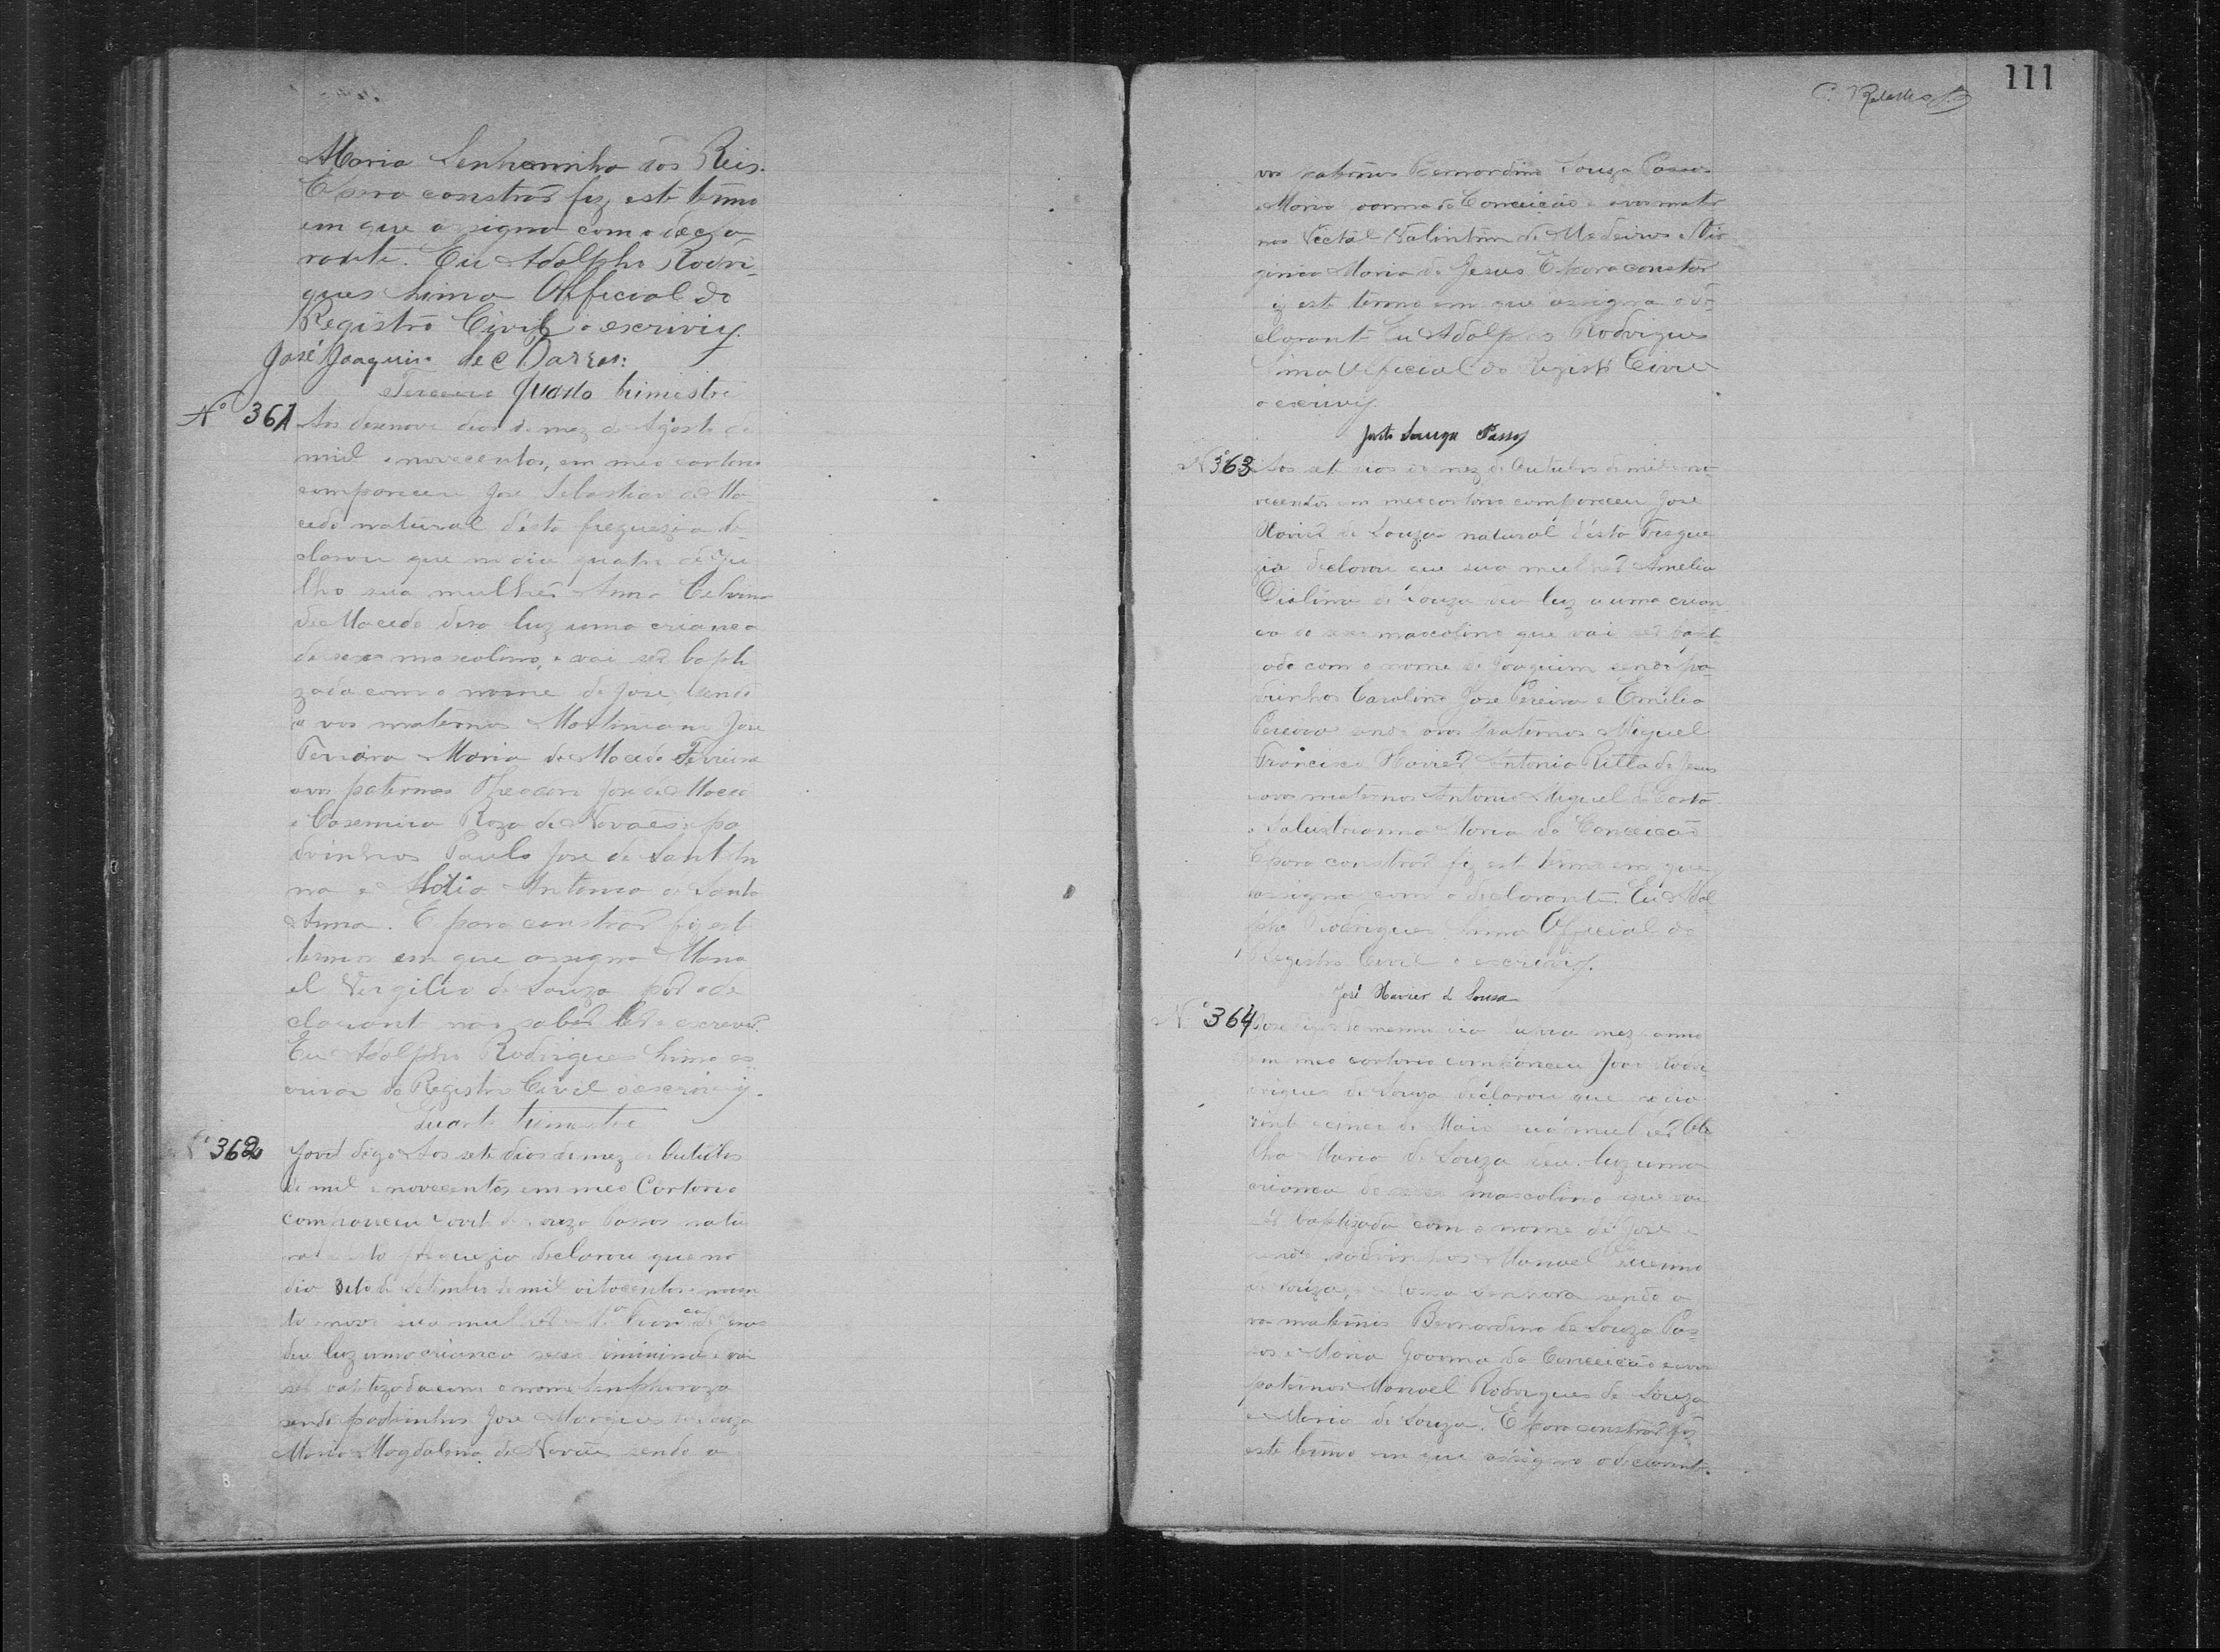 Maria Senhorinha dos Reis.
E para constar fiz este termo
em que assigna com o decla
rante. Eu Adolpho Rodri-
gues Lima Official do
Registro Civil o escriviy.
José Joaquim de Barros
Terceiro Quarto trimestre
Nº 361 Aos desenove dias do mez de Agosto de
mil e novecentos, em meo cartorio
compareceu José Sebastião de Ma
cedo natural d'esta freguezia de-
clarou que no dia quatro de Ju
lho sua mulher Anna
de Macedo dera luz uma crianca
do sexo mascolino, e vai ser bapti
zada com o nome de José, sendo
a vos maternos Martiniano José
Ferreira Maria de Macedo Ferreira
avos paternos José de Macedo
e Casemira Roza de Novaes, pa
drinhos Paulo José de Sant An
na e Antonia de Santa
Anna. E para constar fiz este
termo em que assigna Mano
el Vergilio de Souza por o de
clarante não saber ler e escrever.
Eu Adolpho Rodrigues Lima es
crivão do Registro Civil o escriviy.
Quarto trimestre
Nº 362 digo Aos sete dias do mez de Outubro
de mil e novecentos em meo Cartorio
compareceu de Souza Passos natu
ral desta freguezia declarou que no
dia de Setembro de mil oitocentos e noven
ta e nove sua mulher de Jesus
deu luz uma crianca sexo feminino e vai
ser baptizada com o nome
sendo padrinhos José Marques de Souza
Maria Magdalena de Novaes sendo a
111
vos paternos Bernardino Souza Passos
e Maria da Conceição e avos mater
nos Valentim de Medeiros e Vir
ginia Maria de Jesus E para constar
fiz este termo em que assigna o de-
clarante Eu Adolpho Rodrigues
Lima Official do Registro Civil
o escriviy
Souza Passos
Nº 363 Aos sete dias do mez de Outubro de mil e no
vecentos em meo cartorio compareceu José
Xavier de Souza natural d'esta Fregue
zia declarou que sua mulher Amelia
de Souza deu luz a uma crian
ca do sexo mascolino que vai ser bapti
sado com o nome de Joaquim sendo pa-
drinhos Carolino José Pereira e Emilia
Pereira sendo avos paternos Miguel
Francisco Xavier Antonia Ritta de Jesus
e avos maternos Antonio Miguel da Costa
e Salustrianna Maria da Conceição
E para constar fiz este termo em que
assigna com o declarante. Eu Adol
pho Rodrigues Lima Official do
Registro Civil o escriviy.
José Xavier de Sousa
Nº 364 No mesmo dia mez e anno
em meo cartorio compareceu João Rodri
drigues de Souza declarou que no dia
vinte e cinco de Maio sua mulher
Maria de Souza deu luz uma
crianca do sexo mascolino que vai
ser baptizada com o nome de José e
sendo padrinhos Manoel
de Souza, e Nossa Senhora sendo a
vos maternos Bernardino de Souza Pas
sos e Maria da Conceição e avos
paternos Manoel Rodrigues de Souza
e Maria de Souza. E para constar fiz
este termo em que assigna o declarante.